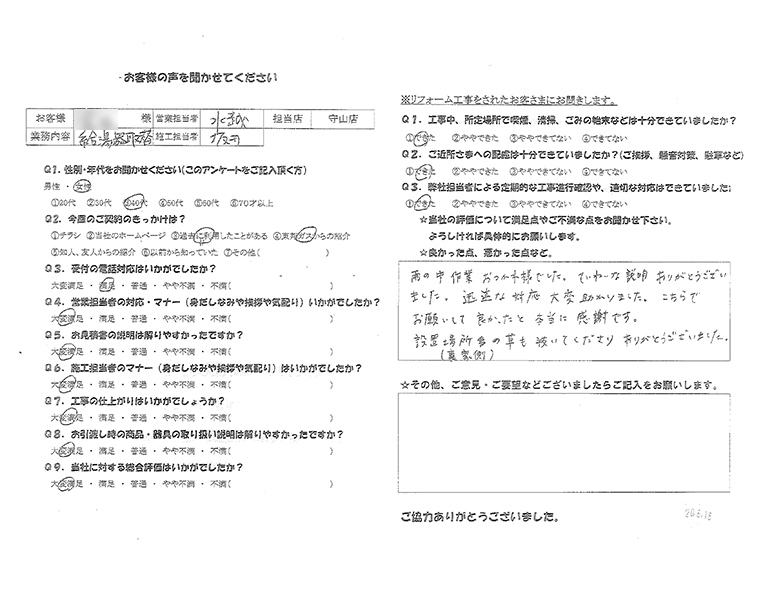 お客様の声を聞かせてください
お客様 様 営業担当者 担当店 守山店
業務内容 給湯器取替 施工担当者
Q1. 性別・年代をお聞かせください(このアンケートをご記入頂く方)
男性 ・ 女性
①20代 ②30代 ③40代 ④50代 ⑤60代 ⑥70才以上
Q2. 今回のご契約のきっかけは?
①チラシ ②当社のホームページ ③過去に利用したことがある ④東邦ガスからの紹介
⑤知人、友人からの紹介 ⑥以前から知っていた ⑦その他( )
Q3. 受付の電話対応はいかがでしたか?
大変満足 ・ 満足 ・ 普通 ・ やや不満 ・ 不満( )
Q4. 営業担当者の対応・マナー(身だしなみや挨拶や気配り)いかがでしたか?
大変満足 ・ 満足 ・ 普通 ・ やや不満 ・ 不満( )
Q5. お見積書の説明は解りやすかったですか?
大変満足 ・ 満足 ・ 普通 ・ やや不満 ・ 不満( )
Q6. 施工担当者のマナー(身だしなみや挨拶や気配り)はいかがでしたか?
大変満足 ・ 満足 ・ 普通 ・ やや不満 ・ 不満( )
Q7. 工事の仕上がりはいかがでしょうか?
大変満足 ・ 満足 ・ 普通 ・ やや不満 ・ 不満( )
Q8. お引渡し時の商品・器具の取り扱い説明は解りやすかったですか?
大変満足 ・ 満足 ・ 普通 ・ やや不満 ・ 不満( )
Q9. 当社に対する総合評価はいかがでしたか?
大変満足 ・ 満足 ・ 普通 ・ やや不満 ・ 不満( )
※リフォーム工事をされたお客さまにお聞きします。
Q1. 工事中、所定場所で喫煙、清掃、ごみの始末などは十分できていましたか?
①できた ②ややできた ③ややできてない ④できてない
Q2. ご近所さまへの配慮は十分できていましたか?(ご挨拶、騒音対策、駐車など)
①できた ②ややできた ③ややできてない ④できてない
Q3. 弊社担当者による定期的な工事進行確認や、適切な対応はできていましたか
①できた ②ややできた ③ややできてない ④できてない
☆当社の評価について満足点やご不満な点をお聞かせ下さい。
よろしければ具体的にお願いします。
☆良かった点、悪かった点など。
雨の中作業 おつかれ様でした。ていねいな説明 ありがとうござい
ました。迅速な対応 大変助かりました。こちらで
お願いして良かったと本当に感謝です。
設置場所の草も抜いてくださり ありがとうございました。
(裏家側)
☆その他、ご意見・ご要望などございましたらご記入をお願いします。
ご協力ありがとうございました。